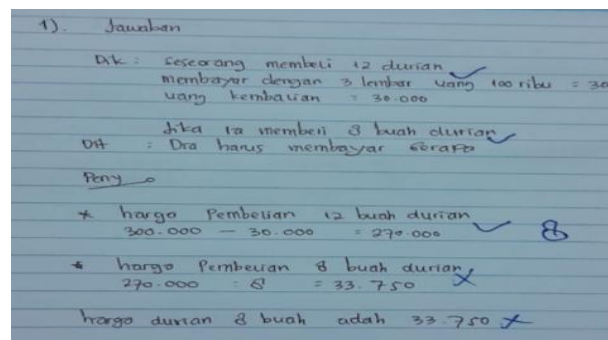 1). Jawaban
Dik : Seseorang membeli 12 durian
membayar dengan 3 lembar uang 100 ribu = 30
uang kembalian = 30.000
Jika ia membeli 8 buah durian
Dit : Dia harus membayar berapa
Peny
* harga Pembelian 12 buah durian
300.000 - 30.000 = 270.000
8
* harga Pembelian 8 buah durian
270.000 : 8 = 33.750
harga durian 8 buah adah 33.750